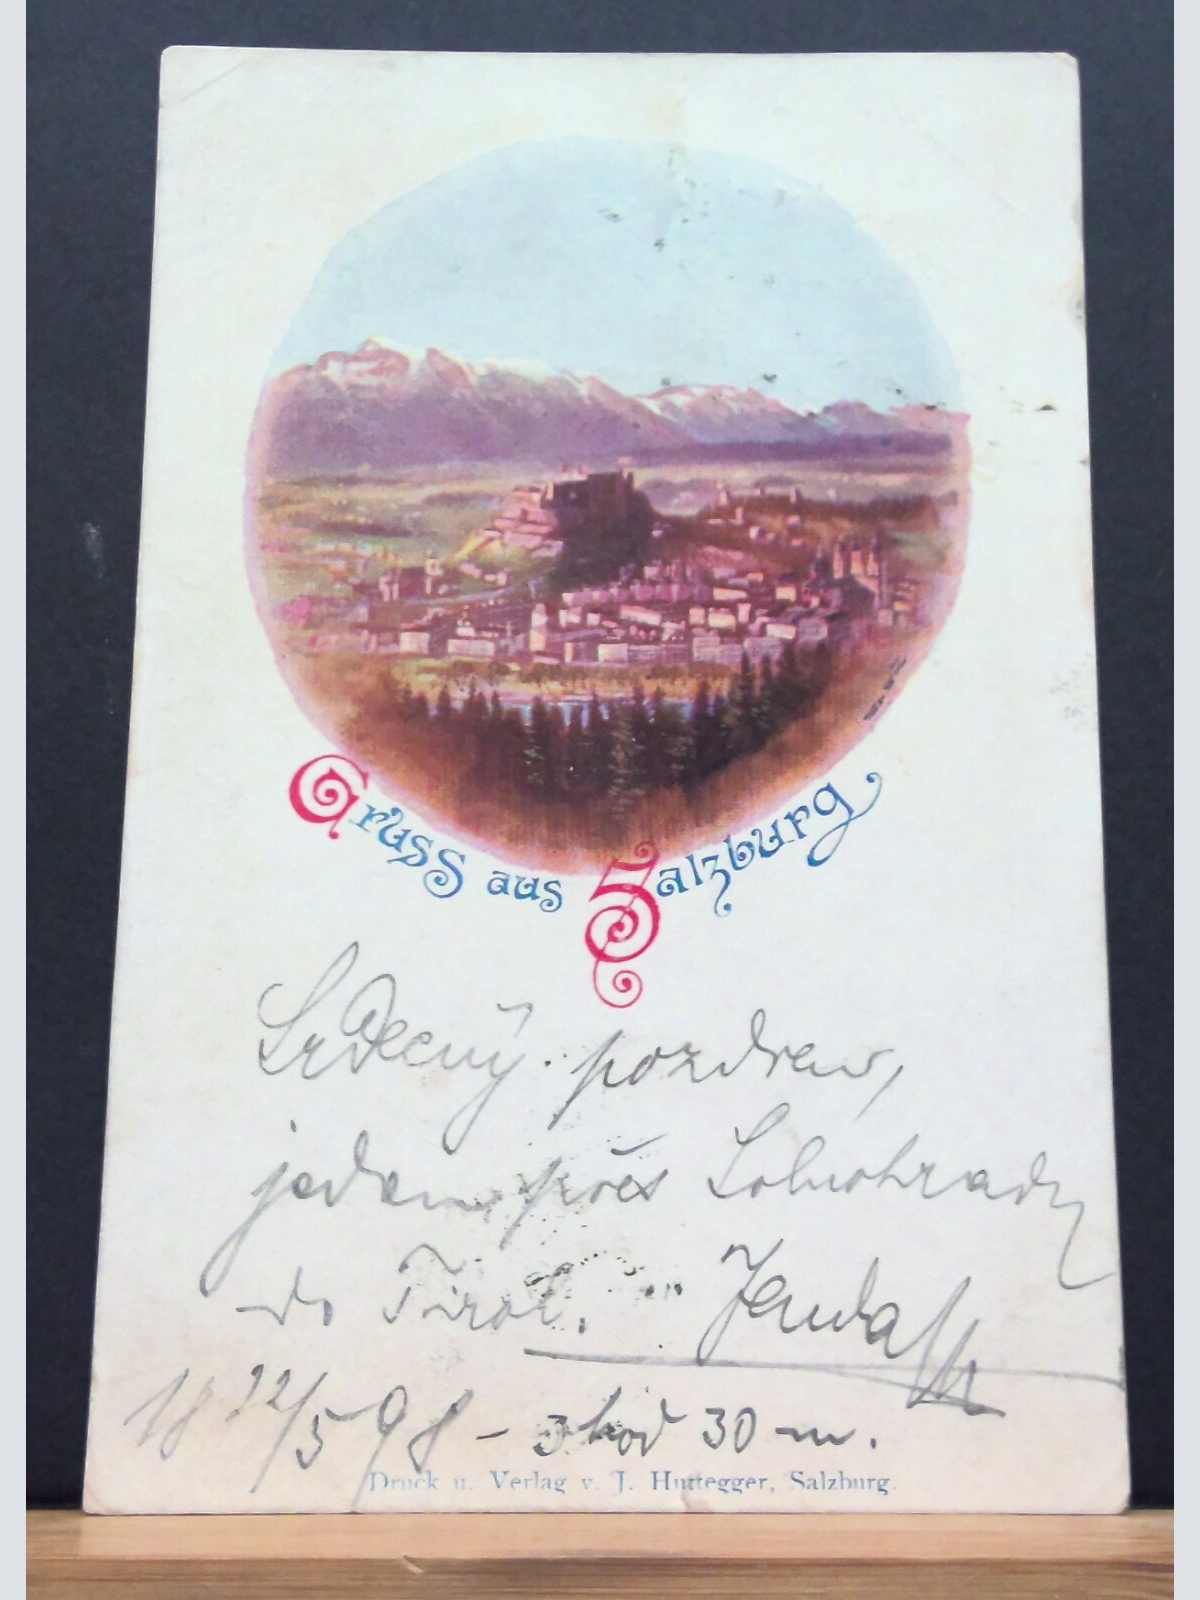 Gruss aus Salzburg
Srdečný pozdrav,
jedem přes Solnohrady
do Tirol. Jenda
18 22/5 98 - 3 hod 30 m.
Druck u. Verlag v. J. Huttegger, Salzburg.